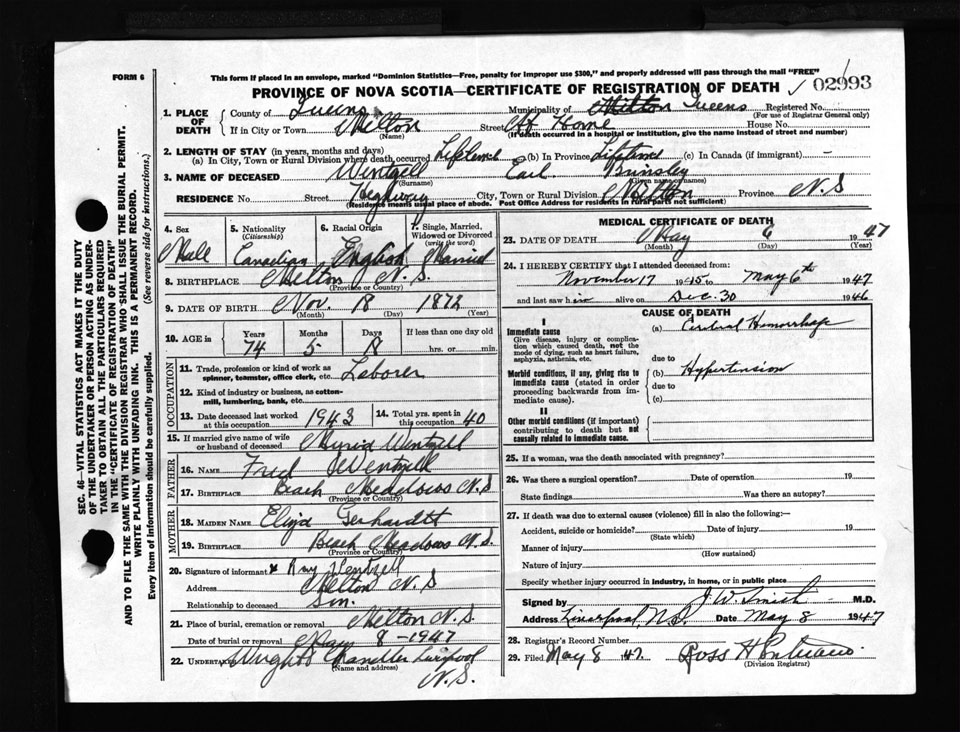 FORM 6
This form if placed in an envelope, marked "Dominion Statistics—Free, penalty for improper use $300," and properly addressed will pass through the mail "FREE"
PROVINCE OF NOVA SCOTIA—CERTIFICATE OF REGISTRATION OF DEATH
02993
1. PLACE OF DEATH
County of Queens Municipality of Milton Queens Registered No.
(For use of Registrar General only)
If in City or Town Milton Street At Home House No.
(Name) (If death occurred in a hospital or institution, give the name instead of street and number)
2. LENGTH OF STAY (in years, months and days)
(a) In City, Town or Rural Division where death occurred Lifetime (b) In Province Lifetime (c) In Canada (if immigrant) -
3. NAME OF DECEASED Wentzell Earl Brinsley
(Surname) (Given name or names)
RESIDENCE No. Street Highway City, Town or Rural Division Milton Province N.S
(Residence means usual place of abode. Post Office Address for residents in rural parts not sufficient)
4. Sex
Male
5. Nationality
(Citizenship)
Canadian
6. Racial Origin
English
7. Single, Married, Widowed or Divorced
(write the word)
Married
8. BIRTHPLACE Milton N. S.
(Province or Country)
9. DATE OF BIRTH Nov. 18 1872
(Month) (Day) (Year)
10. AGE in Years Months Days If less than one day old
74 5 18 hrs. or min.
OCCUPATION
11. Trade, profession or kind of work as spinner, teamster, office clerk, etc. Laborer
12. Kind of industry or business, as cotton-mill, lumbering, bank, etc.
13. Date deceased last worked at this occupation 1943
14. Total yrs. spent in this occupation 40
15. If married give name of wife or husband of deceased Wentzell
FATHER
16. NAME Fred Wentzell
17. BIRTHPLACE Beach Meadows N.S
(Province or Country)
MOTHER
18. MAIDEN NAME Gerhardt
19. BIRTHPLACE Beach Meadows N.S.
(Province or Country)
20. Signature of informant x Ray Wentzell
Address Milton N. S
Relationship to deceased Son.
21. Place of burial, cremation or removal Milton N. S.
Date of burial or removal May 8 - 1947
22. UNDERTAKER Wrights Chandler Liverpool
(Name and address)
N. S.
MEDICAL CERTIFICATE OF DEATH
23. DATE OF DEATH May 6 1947
(Month) (Day) (Year)
24. I HEREBY CERTIFY that I attended deceased from:
November 17 1945 to May 6th 1947
and last saw him alive on Dec. 30 1946
CAUSE OF DEATH
I
Immediate cause
Give disease, injury or complication which caused death, not the mode of dying, such as heart failure, asphyxia, asthenia, etc.
(a) Cerebral Hemorrhage
due to
Morbid conditions, if any, giving rise to immediate cause (stated in order proceeding backwards from immediate cause).
(b) Hypertension
due to
(c)
II
Other morbid conditions (if important) contributing to death but not causally related to immediate cause.
25. If a woman, was the death associated with pregnancy?
26. Was there a surgical operation? Date of operation 19
State findings Was there an autopsy?
27. If death was due to external causes (violence) fill in also the following:—
Accident, suicide or homicide? Date of injury 19
(State which)
Manner of injury
(How sustained)
Nature of injury
Specify whether injury occurred in industry, in home, or in public place
Signed by J. W. Smith M.D.
Address Liverpool, N.S. Date May 8 1947
28. Registrar's Record Number
29. Filed May 8 47. Ross H
(Division Registrar)
SEC. 46—VITAL STATISTICS ACT MAKES IT THE DUTY
OF THE UNDERTAKER OR PERSON ACTING AS UNDER-
TAKER TO OBTAIN ALL THE PARTICULARS REQUIRED
IN THE "CERTIFICATE OF REGISTRATION OF DEATH"
AND TO FILE THE SAME WITH THE DIVISION REGISTRAR WHO SHALL ISSUE THE BURIAL PERMIT.
WRITE PLAINLY WITH UNFADING INK. THIS IS A PERMANENT RECORD.
Every item of information should be carefully supplied. (See reverse side for instructions.)